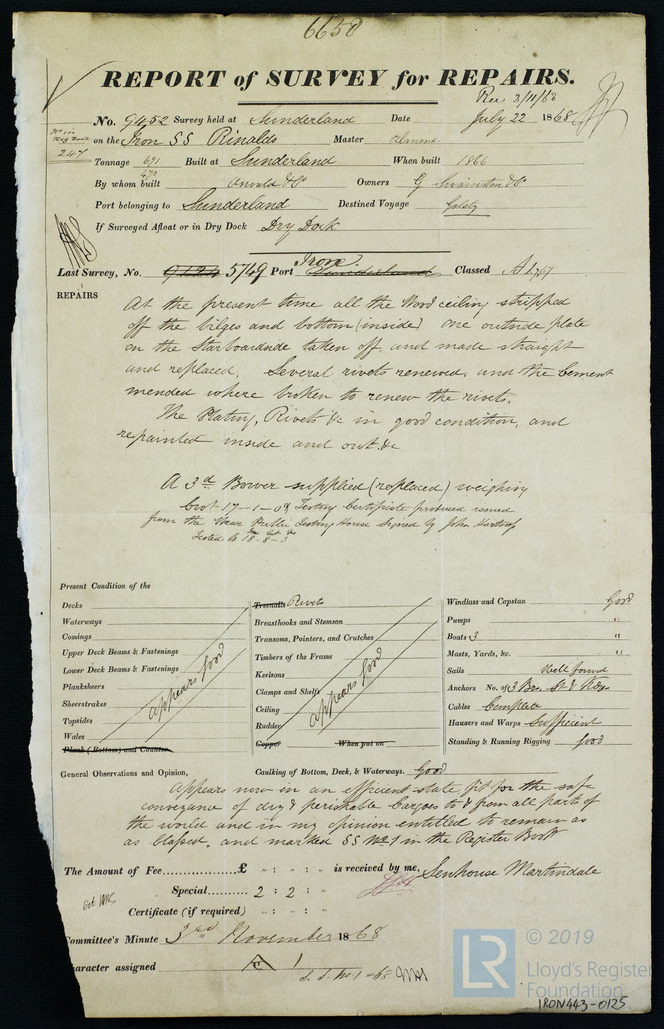 6658
REPORT of SURVEY for REPAIRS.
Rec 3/11/68
No. 9452 Survey held at Sunderland Date July 22 1868
No in Reg Book 247
on the Iron SS Rinaldo Master Almond
Tonnage 691 Built at Sunderland When built 1866
470
By whom built Owners G Swainston & Co
Port belonging to Sunderland Destined Voyage
If Surveyed Afloat or in Dry Dock Dry Dock
Last Survey, No. 9124 5749 Port Sunderland Iron. Classed A1 /67
REPAIRS
At the present time all the Wood ceiling stripped
off the bilges and bottom (inside) one outside plate
on the Starboardside taken off, and made straight
and replaced. Several rivets renewed, and the Cement
mended where broken to renew the rivets.
The Plating, Rivets &c in good condition, and
repainted inside and out &c
A 3d Bower supplied (replaced) weighing
Cwt 17-1-0 & Testing Certificate produced issued
from the Wear Public Testing House Signed by John Hartroy
Tested to 18-8-3
Present Condition of the
Decks
Waterways
Comings
Upper Deck Beams & Fastenings
Lower Deck Beams & Fastenings
Planksheers
Sheerstrakes
Topsides
Wales
Plank (Bottom) and Counter
appears good
Treenails Rivets
Breasthooks and Stemson
Transoms, Pointers, and Crutches
Timbers of the Frame
Keelsons
Clamps and Shelfs
Ceiling
Rudder
Copper When put on
appears good
Windlass and Capstan Good
Pumps "
Boats 3 "
Masts, Yards, &c. "
Sails Well found
Anchors No. of 3 Bow. St & Kedge
Cables Complete
Hausers and Warps Sufficient
Standing & Running Rigging Good
General Observations and Opinion, Caulking of Bottom, Deck, & Waterways. Good
Appears now in an efficient state fit for the safe
conveyance of dry & perishable Cargoes to & from all parts of
the world and in my opinion entitled to remain as
as Classed, and marked SS No 1 in the Register Book
The Amount of Fee £ " : " : " is received by me, Senhouse Martindale
Special 2 : 2 : "
Certificate (if required) " : " : "
Committee's Minute 3rd November 1868
Character assigned A 1
S.S. No. 1-68
LR
© 2019
Lloyd's Register
Foundation
IRON443-0125